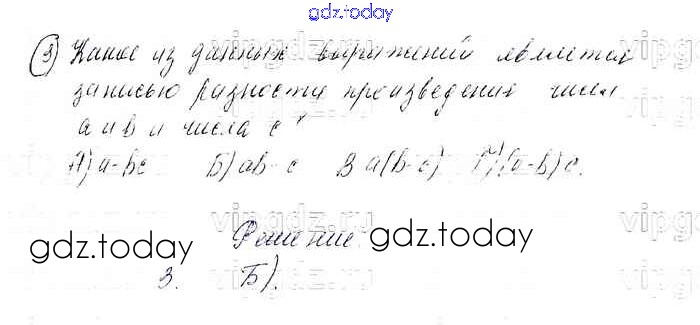 gdz.today
3) Какое из данных выражений является
записью разности произведения чисел
a и b и числа c?
А) a-bc Б) ab-c В a(b-c) Г) (a-b)c.
Решение
gdz.today gdz.today
3. Б).